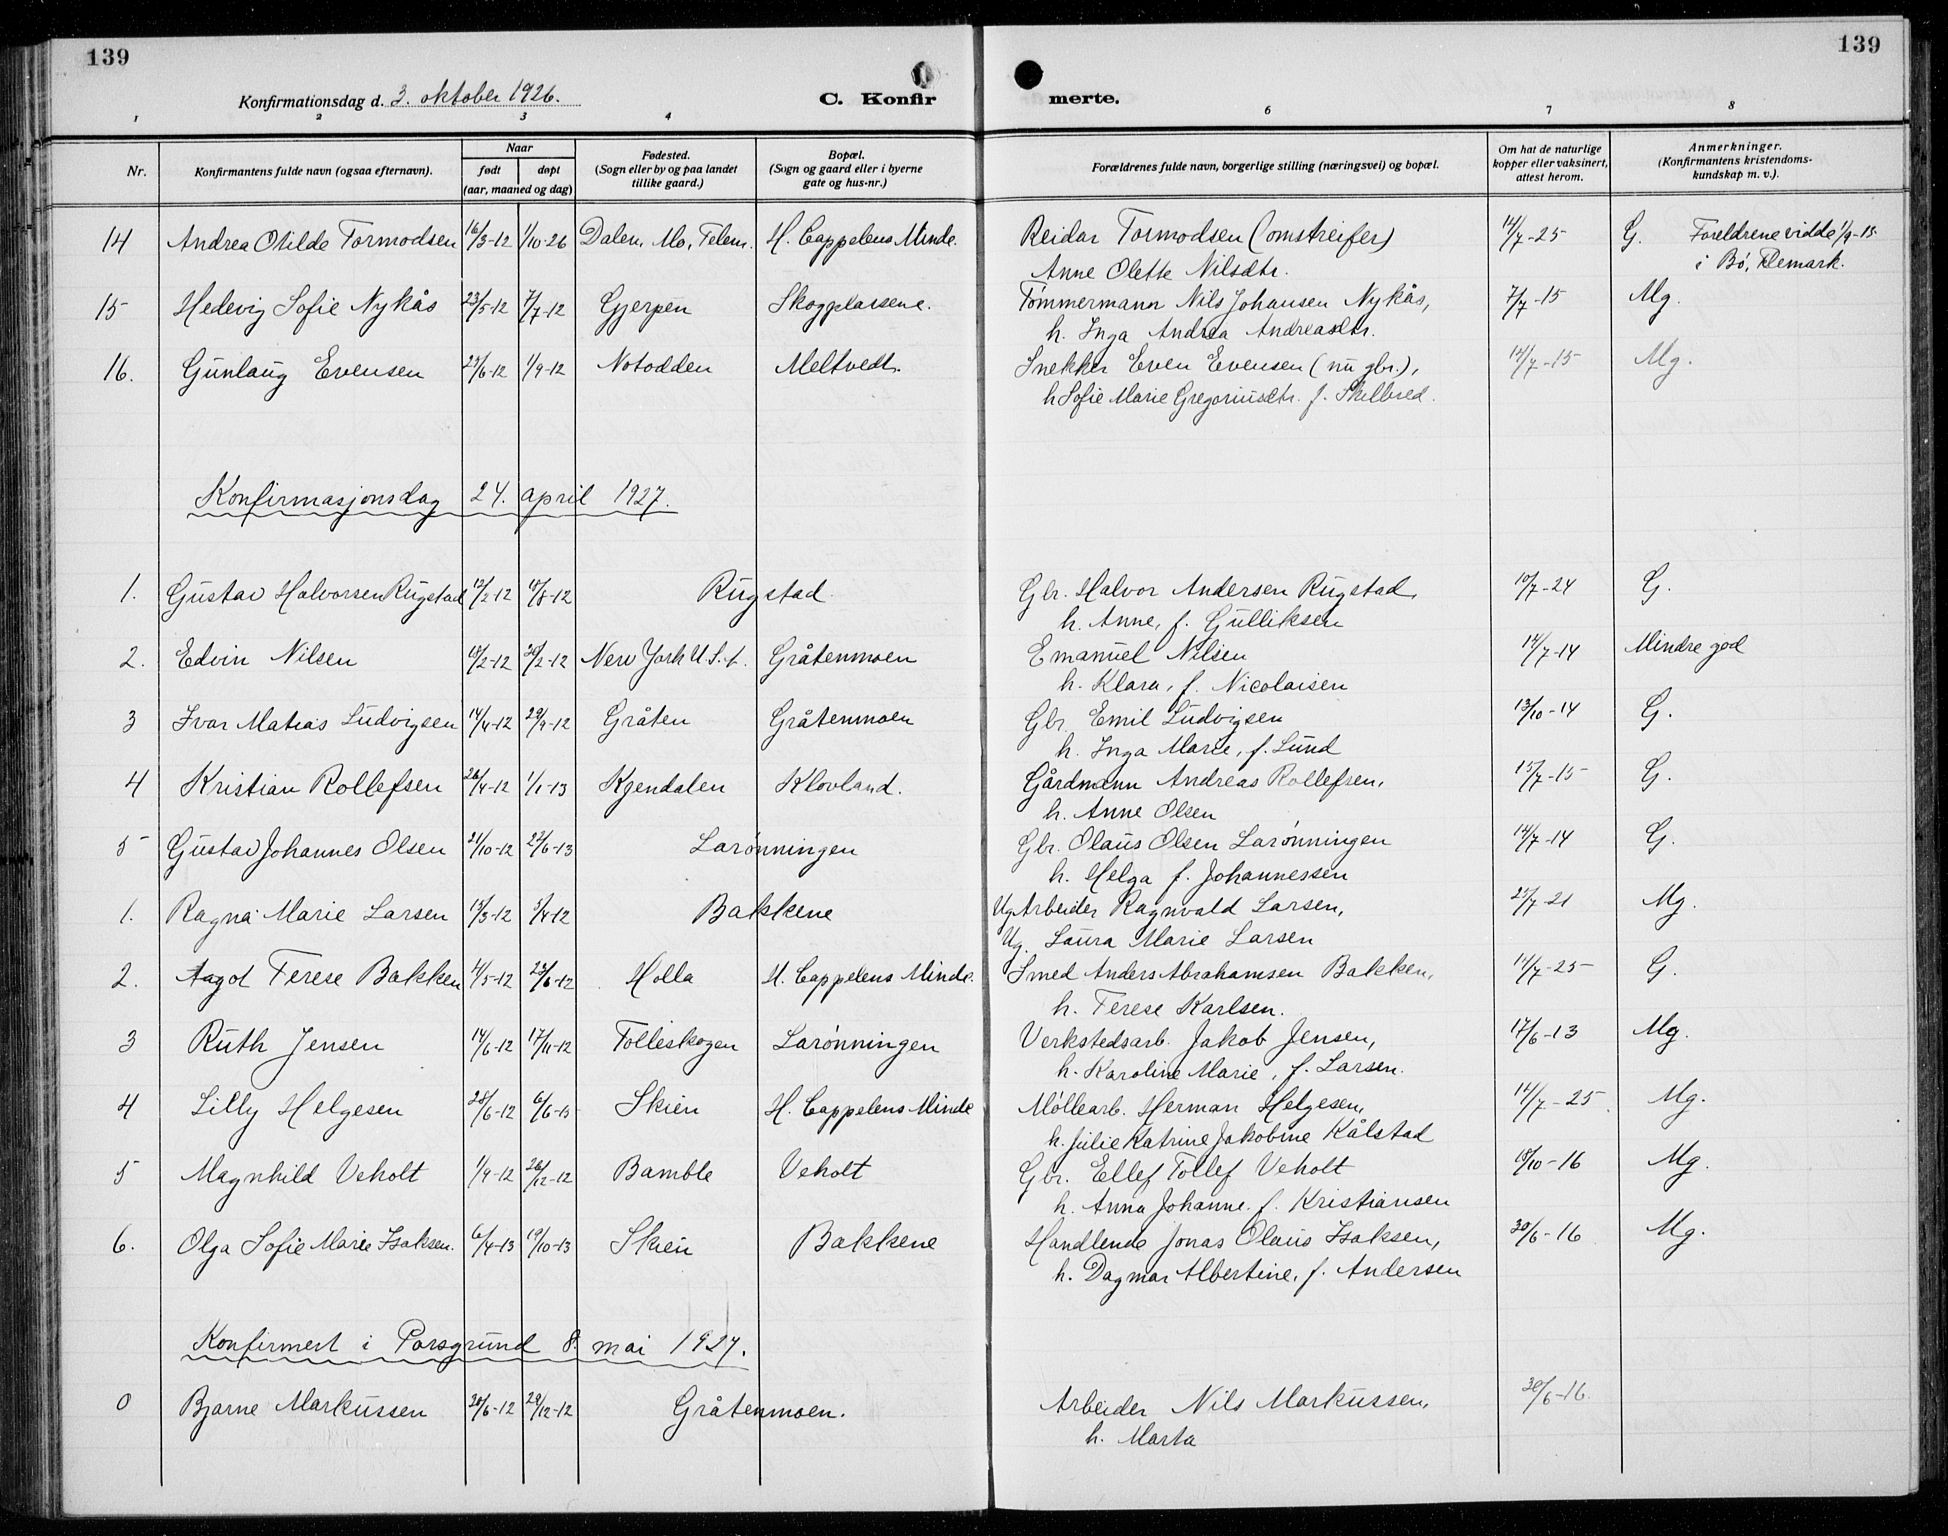 139
139
Konfirmationsdag d. 3. oktober 1926.
C. Konfir
merte.
1 2 3 4 6 7 8
Nr.
Konfirmantens fulde navn (ogsaa efternavn).
Naar
født døpt
(aar, maaned og dag)
Fødested.
(Sogn eller by og paa landet
tillike gaard.)
Bopæl.
(Sogn og gaard eller i byerne
gate og hus-nr.)
Forældrenes fulde navn, borgerlige stilling (næringsvei) og bopæl.
Om hat de naturlige
kopper eller vaksinert,
attest herom.
Anmerkninger.
(Konfirmantens kristendoms-
kundskap m. v.).
14 Andrea Otilde Tormodsen 16/3-12 1/10-26 Dalen, Mo, Telem. H. Cappelens Minde. Reidar Tormodsen (omstreifer) 14/7-25 G. Foreldrene vidde 1/9-15
Anne Olette Nilsdtr. i Bø, Telemark.
15 Hedevig Sofie Nykås 23/5-12 7/7-12 Gjerpen Skogplassene. Tømmermann Nils Johansen Nykås, 7/7-15 Mg.
h. Inga Andrea Andreasdtr.
16. Gunlaug Evensen 23/6-12 1/9-12 Notodden Meltvedt. Snekker Even Evensen (nu gbr.), 14/7-15 Mg.
h Sofie Marie Gregoriusdtr. f. Skilbred.
Konfirmasjonsdag 24. april 1927.
1. Gustav Halvorsen Rugstad 12/2-12 18/8-12 Rugstad Gbr. Halvor Andersen Rugstad, 10/7-24 G.
h. Anne, f. Gulliksen
2. Edvin Nilsen 18/2-12 26/2-12 New York U.S.A. Gråtenmoen Emanuel Nilsen 14/7-14 Mindre god
h. Klara, f. Nicolaisen
3 Ivar Matias Ludvigsen 14/4-12 29/9-12 Gråten Gråtenmoen Gbr. Emil Ludvigsen 13/10-14 G.
h. Inga Marie, f. Lund
4 Kristian Rollefsen 26/4-12 1/1-13 Kjendalen Klovland. Gårdmann Andreas Rollefsen, 15/7-15 G.
h. Anne Olsen
5 Gustav Johannes Olsen 21/10-12 22/6-13 Larønningen Gbr. Olaus Olsen Larønningen 14/7-14 G.
h. Helga f. Johannessen
1. Ragna Marie Larsen 13/3-12 5/4-12 Bakkene Ug Arbeider Ragnvald Larsen, 25/7-21 Mg.
Ug. Laura Marie Larsen
2. Aagot Terese Bakken 11/5-12 23/6-12 Holla H. Cappelens Minde. Smed Anders Abrahamsen Bakken, 14/7-25 G.
h. Terese Karlsen.
3 Ruth Jensen 14/6-12 17/11-12 Tolleskogen Larønningen Verkstedsarb. Jakob Jensen, 17/6-13 Mg.
h. Karoline Marie, f. Larsen.
4 Lilly Helgesen 28/6-12 6/6-15 Skien H. Cappelens Minde Møllearb. Herman Helgesen, 14/7-25 Mg.
h. Julie Katrine Jakobine Kålstad
5 Magnhild Veholt 1/9-12 26/12-12 Bamble Veholt Gbr. Ellef Tollef Veholt 18/10-16 Mg.
h. Anna Johanne. f. Kristiansen
6. Olga Sofie Marie Isaksen. 6/4-13 19/10-13 Skien Bakkene Handlende Jonas Olaus Isaksen, 30/6-16 Mg.
h. Dagmar Albertine, f. Andersen
Konfirmert i Porsgrund 8. mai 1927.
0 Bjarne Markussen 30/6-12 29/12-12 Gråtenmoen. Arbeider Nils Markussen, 30/6-16.
h. Marta